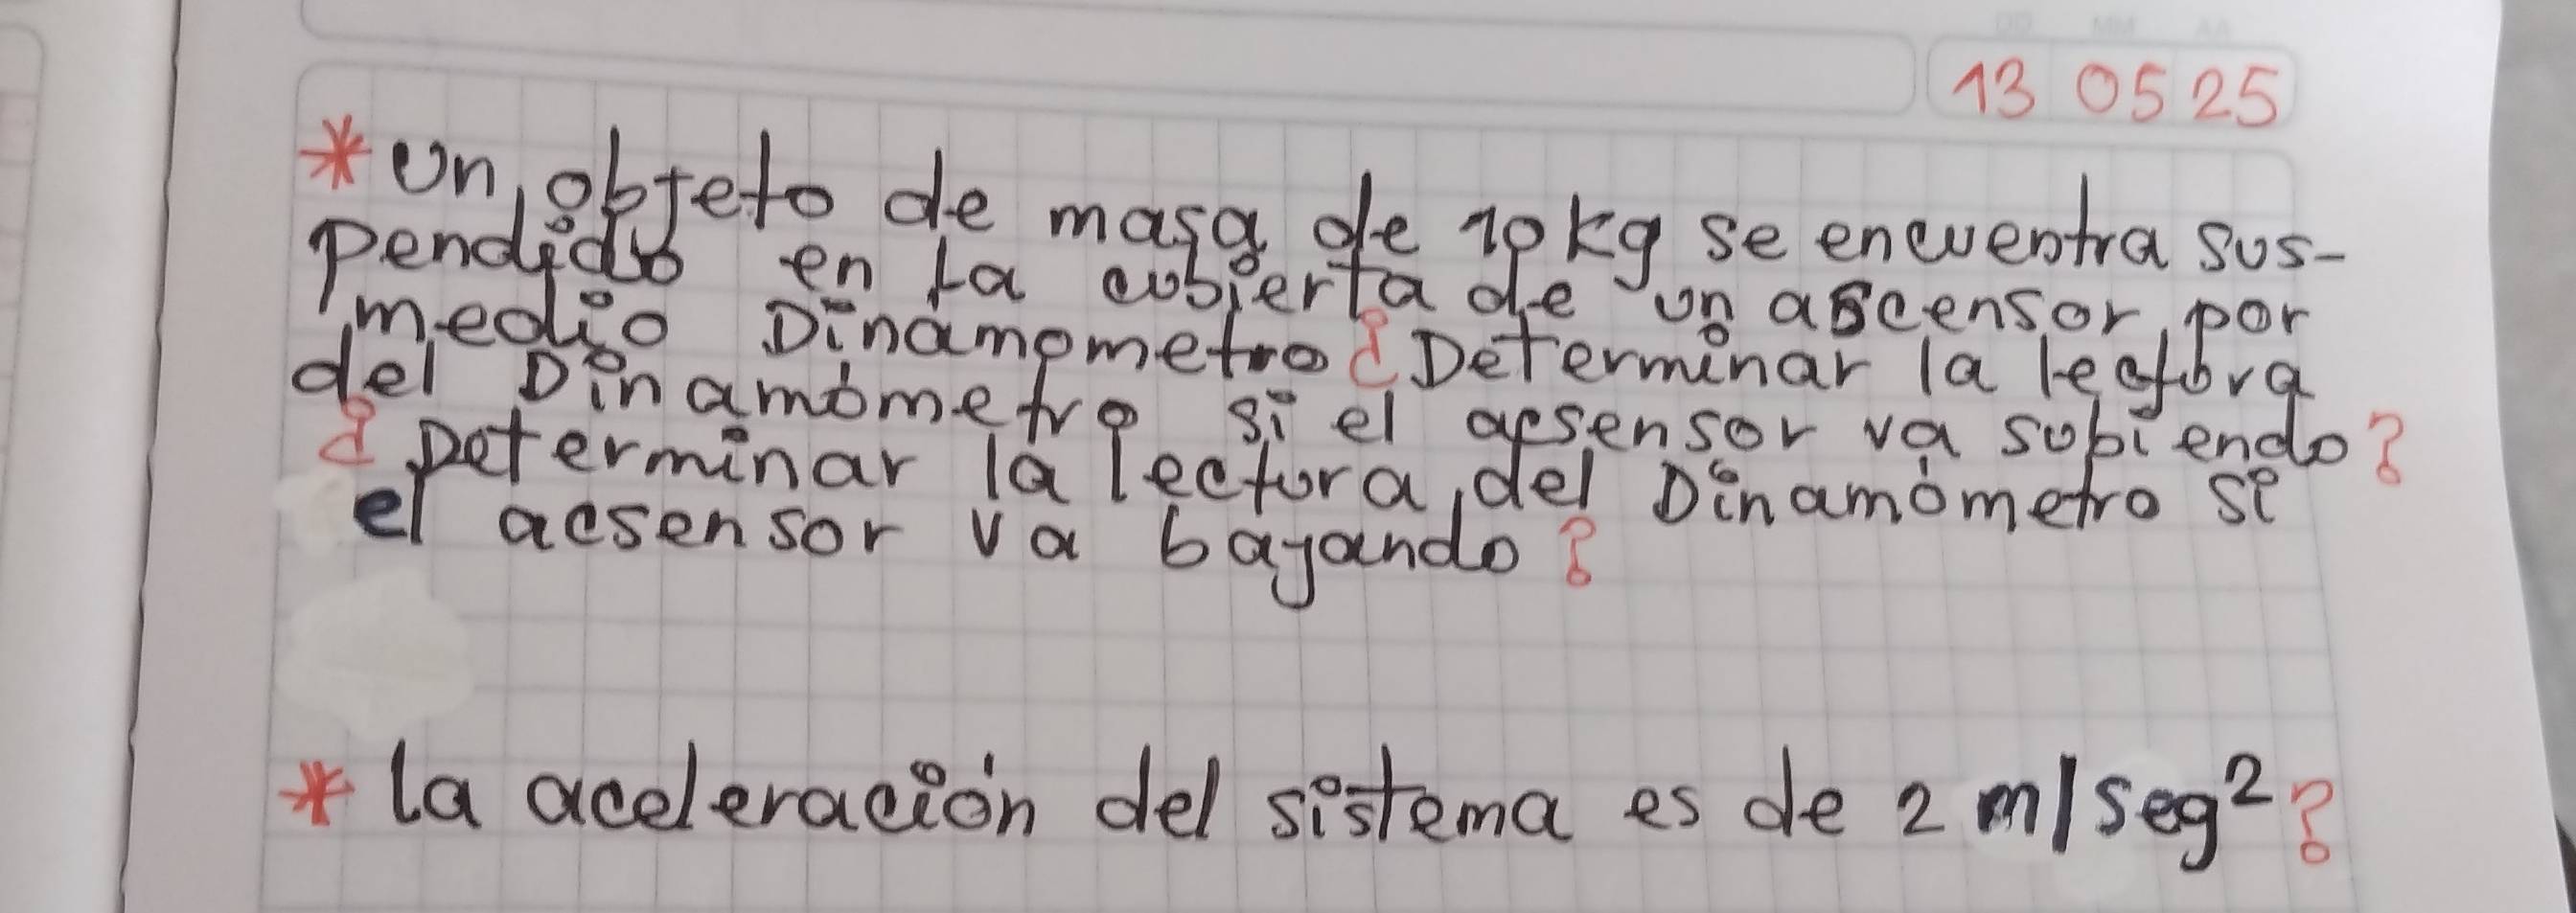 13 05 25
* Un objeto de masa de 10 kg se encuentra sus-
pendido en la cubierta de un ascensor, por
medio Dinamometro ¿Determinar la lectura
del Dinamómetro si el acsensor va subiendo?
¿Determinar la lectura, del Dinamómetro si
el acsensor va bajando?
* la aceleración del sistema es de 2 m/seg²?